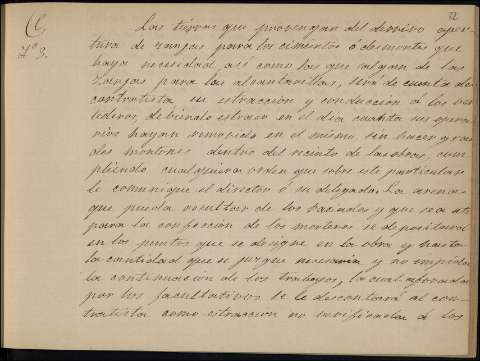 72
C,
Nº 3.
Las tierras que provengan del derrivo aper-
tura de zanjas para los cimientos ó desmontes que
haya necesidad, así como las que salgan de las
zanjas para las alcantarillas, será de cuenta del
contratista su estracción y conducción á los ver-
tederos, debiendo estraer en el dia cuanta sus opera-
rios hayan removido en el mismo, sin hacer gran-
des montones dentro del recinto de las obras, cum-
pliendo cualquiera orden que sobre este particular
le comunique el director ó su delegado. La arena
que pueda resultar de los vaciados y que sea util
para la confección de los morteros se depositará
en los puntos que se designe en la obra y hasta
la cantidad que se juzgue necesaria y no empida
la continuación de los trabajos, la cual aforada
por los facultativos se le descontará al con-
tratista como estraccion no verificada de los